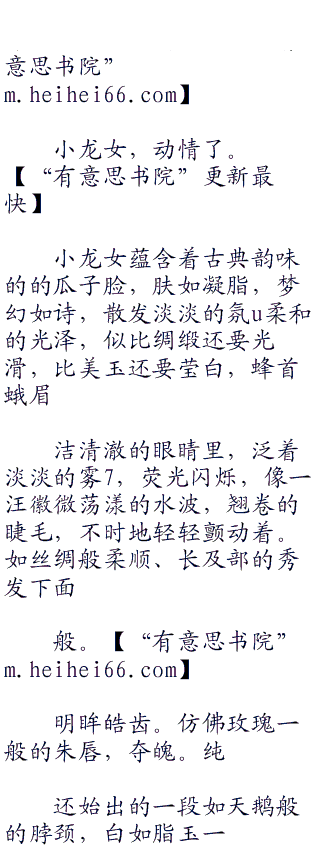 意思书院”
m.heihei66.com】
小龙女，动情了。
【“有意思书院”更新最
快】
小龙女蕴含着古典韵味
的的瓜子脸，肤如凝脂，梦
幻如诗，散发淡淡的氛u柔和
的光泽，似比绸缎还要光
滑，比美玉还要莹白，蜂首
蛾眉
洁清澈的眼睛里，泛着
淡淡的雾7，荧光闪烁，像一
汪徽微荡漾的水波，翘卷的
睫毛，不时地轻轻颤动着。
如丝绸般柔顺、长及部的秀
发下面
般。【“有意思书院”
m.heihei66.com】
明眸皓齿。仿佛玫瑰一
般的朱唇，夺魄。纯
还始出的一段如天鹅般
的脖颈，白如脂玉一